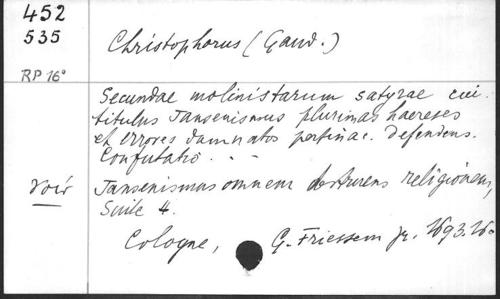 452
535
RP 16°
Christophorus (Gand.)
Secundae molinistarum satyrae cui.
titulus Jansenismus plurimas haereses
et errores damnatos pertinac. defendens.
Confutatio . . .
Voir
Jansenismus omnem destruens religionem,
Suite 4.
Cologne, G. Friessem jr. 1693. 16°